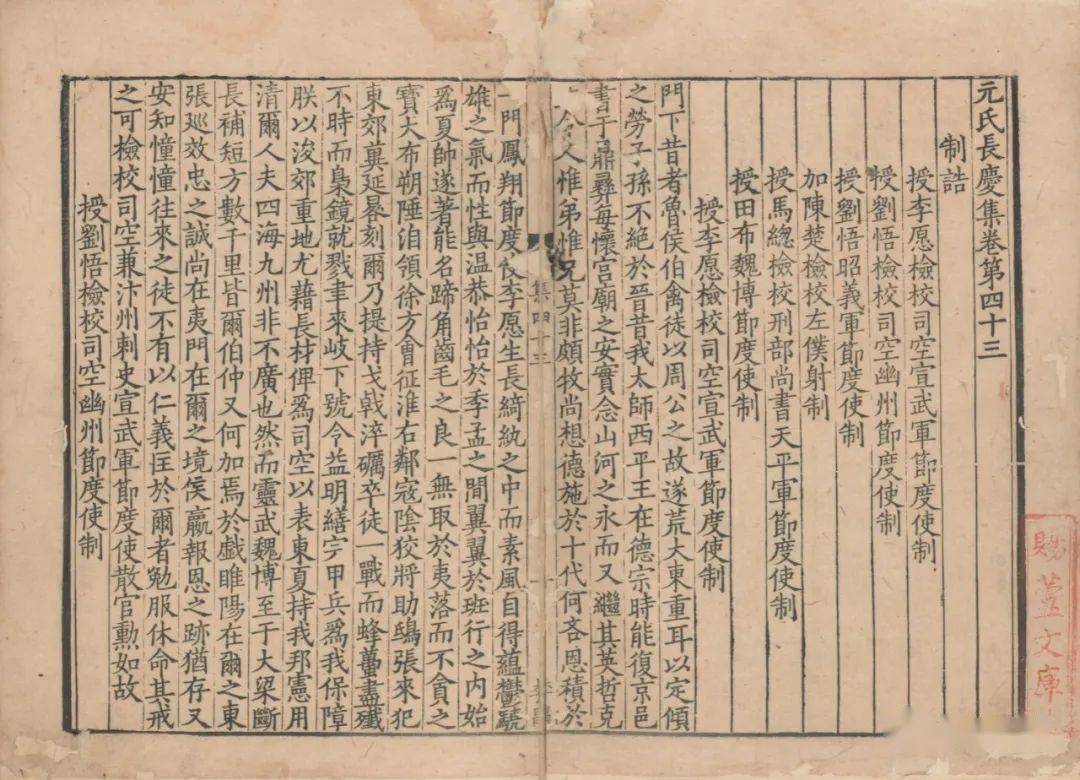 元氏長慶集卷第四十三
制誥
授李愿檢校司空宣武軍節度使制
授劉悟檢校司空幽州節度使制
授劉悟昭義軍節度使制
加陳楚檢校左僕射制
授馬總檢校刑部尚書天平軍節度使制
授田布魏博節度使制
授李愿檢校司空宣武軍節度使制
門下昔者魯侯伯禽徒以周公之故遂荒大東重耳以定傾
之勞子孫不絕於晉昔我太師西平王在德宗時能復京邑
書于鼎彝每懷宮廟之安實念山河之永而又繼其英哲克
令人惟弟惟兄莫非頗牧尚想德施於十代何吝恩積於
一門鳳翔節度使李愿生長綺紈之中而素風自得蘊鬱驍
雄之氣而性與溫恭怡怡於季孟之間翼翼於班行之內始
爲夏帥遂著能名蹄角齒毛之良一無取於夷落而不貪之
寶大布朔陲洎領徐方會征淮右鄰寇陰狡將助鴟張來犯
東郊莫延晷刻爾乃提持戈戟淬礪卒徒一戰而蜂蠆盡殲
不時而梟鏡就戮聿來岐下號令益明繕宇甲兵爲我保障
朕以浚郊重地尤藉長材俾爲司空以表東夏持我邦憲用
清爾人夫四海九州非不廣也然而靈武魏博至于大梁斷
長補短方數千里皆爾伯仲又何加焉於戲睢陽在爾之東
張廵效忠之誠尚在夷門在爾之境侯嬴報恩之跡猶存又
安知憧憧往來之徒不有以仁義匡於爾者勉服休命其戒
之可檢校司空兼汴州刺史宣武軍節度使散官勳如故
授劉悟檢校司空幽州節度使制
集四十三
十一
賜蘆文庫